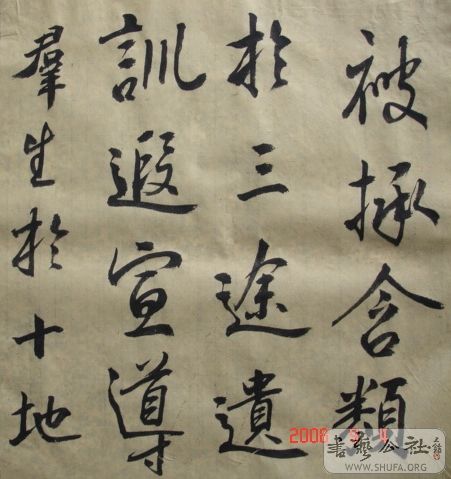 被拯含類
於三途遺
訓遐宣導
羣生於十地
2008
書藝公社
WWW.SHUFA.ORG